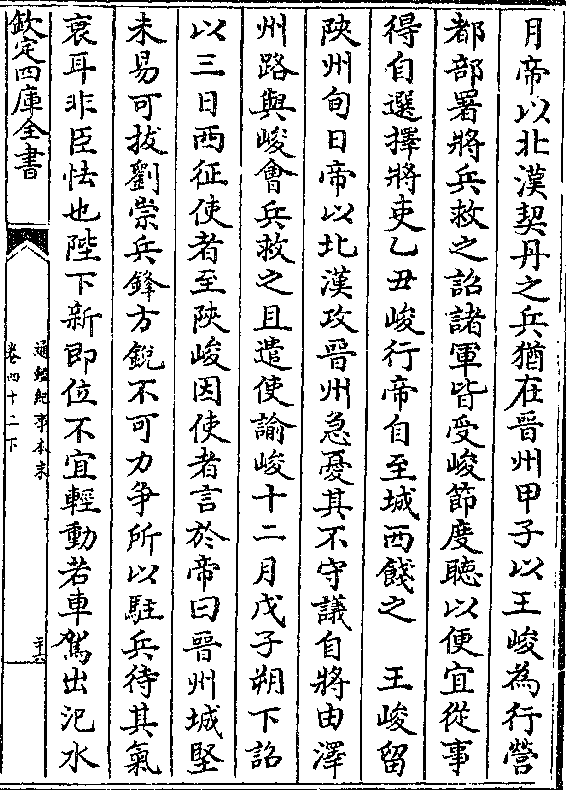 月帝以北漢契丹之兵猶在晉州甲子以王峻為行營
都部署將兵救之詔諸軍皆受峻節度聽以便宜從事
得自選擇將吏乙丑峻行帝自至城西餞之　王峻留
陝州旬日帝以北漢攻晉州急憂其不守議自將由澤
州路與峻會兵救之且遣使諭峻十二月戊子朔下詔
以三日西征使者至陝峻因使者言於帝曰晉州城堅
未易可拔劉崇兵鋒方銳不可力爭所以駐兵待其氣
衰耳非臣怯也陛下新即位不宜輕動若車駕出汜水
欽定四庫全書
通鑑紀事本末
卷四十二下
三十六